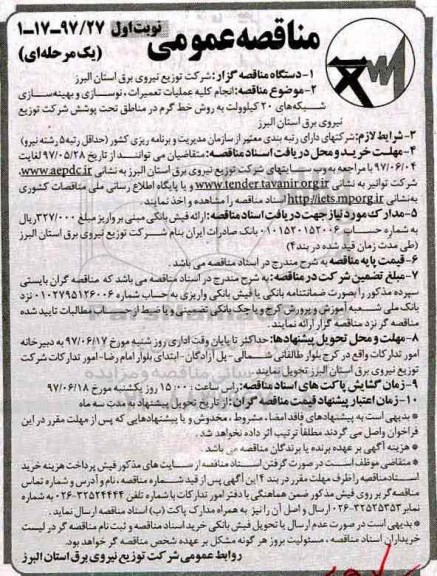 مناقصه عمومی
نوبت اول ۹۷/۲۷-۱۷-۱
(یک مرحله‌ای)
۱-دستگاه مناقصه گزار: شرکت توزیع نیروی برق استان البرز
۲-موضوع مناقصه: انجام کلیه عملیات تعمیرات، نوسازی و بهینه‌سازی
شبکه‌های ۲۰ کیلوولت به روش خط گرم در مناطق تحت پوشش شرکت توزیع
نیروی برق استان البرز
۳-شرایط لازم: شرکتهای دارای رتبه بندی معتبر از سازمان مدیریت و برنامه ریزی کشور (حداقل رتبه ۵ رشته نیرو)
۴-مهلت خرید و محل دریافت اسناد مناقصه: متقاضیان می توانند از تاریخ ۹۷/۰۵/۲۸ لغایت
۹۷/۰۶/۰۴ با مراجعه به وب سایتهای شرکت توزیع نیروی برق استان البرز به نشانی www.aepdc.ir،
شرکت توانیر به نشانی www.tender.tavanir.org.ir و یا پایگاه اطلاع رسانی ملی مناقصات کشوری
به نشانی http://iets.mporg.ir اسناد مناقصه را مشاهده و اخذ نمایند.
۵-مدارک مورد نیاز جهت دریافت اسناد مناقصه: ارائه فیش بانکی مبنی بر واریز مبلغ ۳۲۷/۰۰۰ ریال
به شماره حساب ۰۱۰۱۵۲۰۱۵۲۰۰۶ بانک صادرات ایران بنام شرکت توزیع نیروی برق استان البرز
(طی مدت زمان قید شده در بند ۴)
۶-قیمت پایه مناقصه به شرح مندرج در اسناد مناقصه می باشد.
۷-مبلغ تضمین شرکت در مناقصه: به شرح مندرج در اسناد مناقصه می باشد که مناقصه گران بایستی
سپرده مذکور را بصورت ضمانتنامه بانکی یا فیش بانکی واریزی به حساب شماره ۰۱۰۲۷۹۵۱۲۶۰۰۶ نزد
بانک ملی شعبه آموزش و پرورش کرج و یا چک بانکی تضمینی و یا ضبط از حساب مطالبات تایید شده
مناقصه گر نزد مناقصه گزار ارائه نمایند.
۸-مهلت و محل تحویل پیشنهادها: حداکثر تا پایان وقت اداری روز شنبه مورخ ۹۷/۰۶/۱۷ به دبیرخانه
امور تدارکات واقع در کرج بلوار طالقانی شمالی-پل آزادگان-ابتدای بلوار امام رضا-امور تدارکات شرکت
توزیع نیروی برق استان البرز تحویل نمایند
۹-زمان گشایش پاکت های اسناد مناقصه: راس ساعت ۱۵:۰۰ روز یکشنبه مورخ ۹۷/۰۶/۱۸
۱۰-زمان اعتبار پیشنهاد قیمت مناقصه گران: از تاریخ تحویل پیشنهاد به مدت سه ماه
* بدیهی است به پیشنهادهای فاقد امضاء، مشروط، مخدوش و یا پیشنهادهایی که پس از مهلت مقرر در این
فراخوان واصل می گردند مطلقاً ترتیب اثر داده نخواهد شد.
* هزینه آگهی بر عهده برنده یا برندگان مناقصه می باشد.
* متقاضی موظف است در صورت گرفتن اسناد مناقصه از سایت های مذکور فیش پرداخت هزینه خرید
اسناد مناقصه را ظرف مهلت مقرر در بند ۴ این آگهی پس از قید شماره مناقصه، نام و آدرس و شماره تماس
مناقصه گر بر روی فیش مذکور ضمن هماهنگی با دفتر امور تدارکات با شماره تلفن ۳۲۵۲۴۴۴۴-۰۲۶ به شماره
نمابر ۳۲۵۲۵۳۵۳-۰۲۶ ارسال و اصل آن را نیز به همراه مدارک پاکت (ب) اسناد مناقصه ارسال نماید.
* بدیهی است در صورت عدم ارسال یا تحویل فیش بانکی خرید اسناد مناقصه و ثبت نام مناقصه گر در لیست
خریداران اسناد مناقصه، مسئولیت بروز هر گونه مشکل بر عهده شخص مناقصه گر خواهد بود.
روابط عمومی شرکت توزیع نیروی برق استان البرز